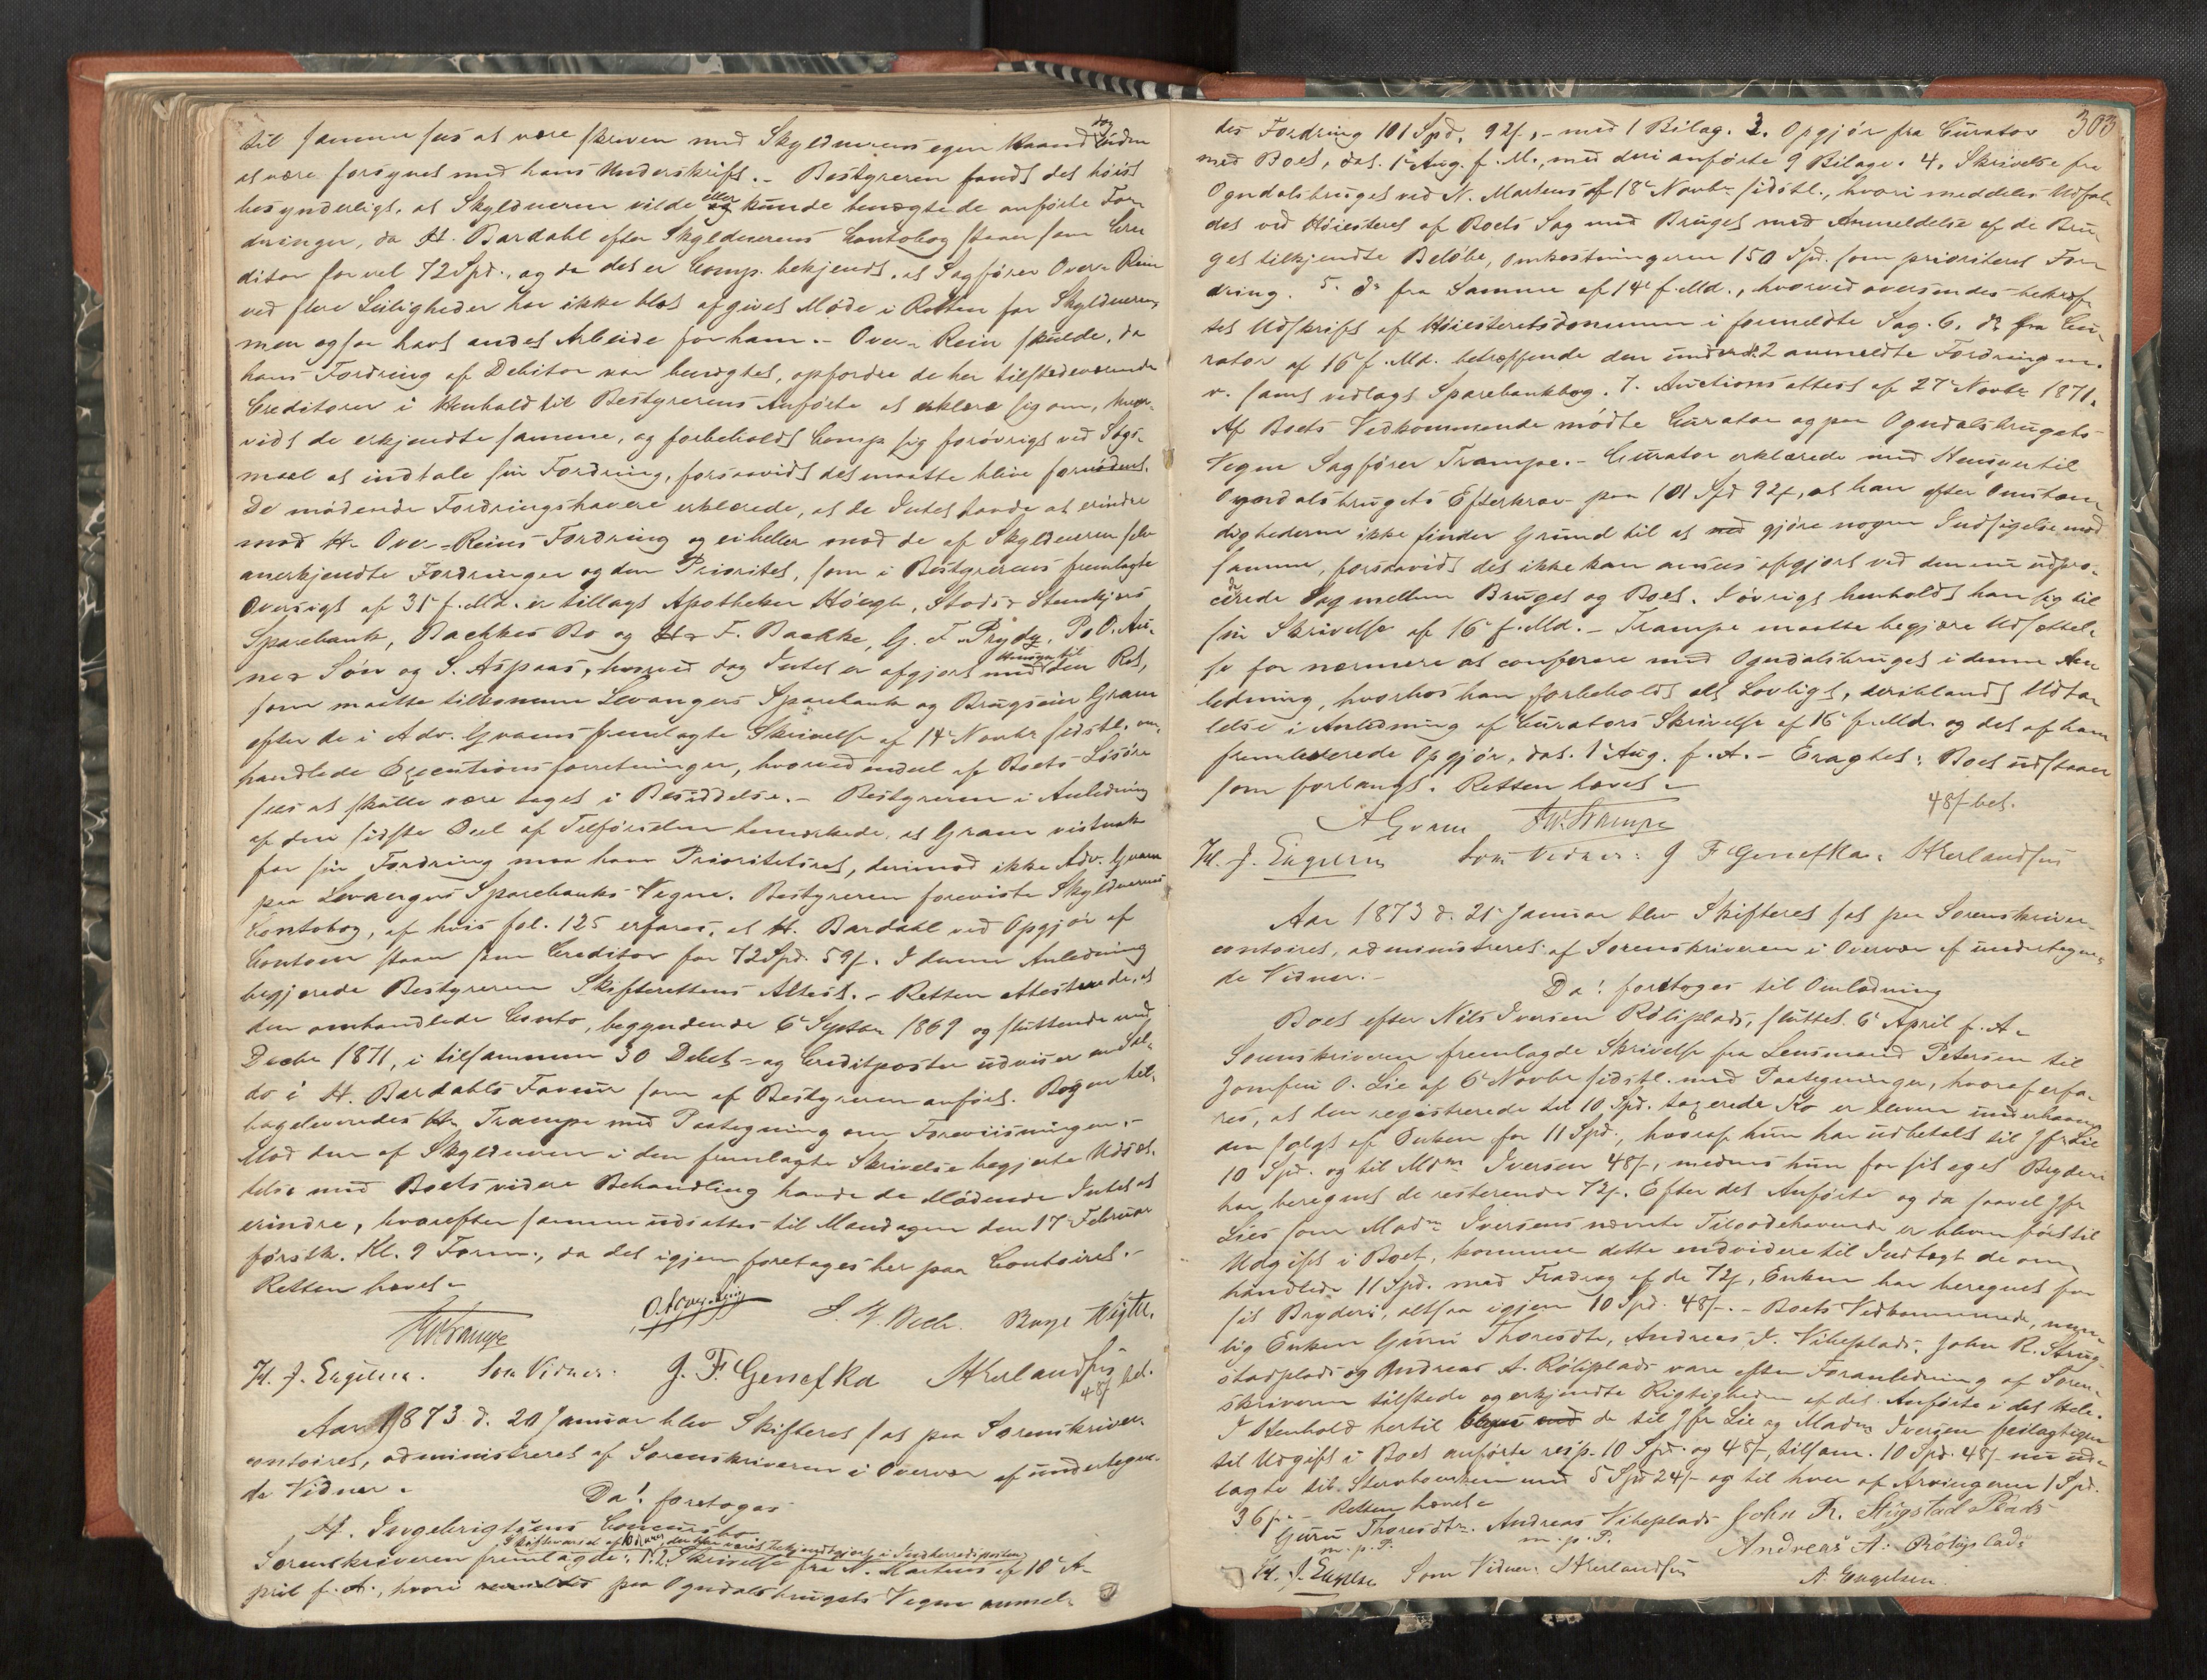 til samme sees at være skreven med Skyldnerens egen Haand dog uden
at være forsynet med hans Underskrift. - Bestyreren fandt det høist
besynderligt, at Skyldneren vilde eller kunde benægte de anførte For-
dringer, da H. Bardahl efter Skyldnerens Contobog staar som Cre-
ditor for vel 72 Spd., og da det er Comp. bekjendt, at Sagfører Over-Rein
ved flere Leiligheder har ikke blot afgivet Møde i Retten for Skyldneren,
men ogsaa havt andet Arbeide for ham. - Over-Rein skulde, da
hans Fordring af Debitor var benægtet, opfordre de her tilstedeværende
Creditorer i Henhold til Bestyrerens Anførte at erklære sig om, hvor-
vidt de erkjendte samme, og forbeholdt Comp. sig forøvrigt ved Søgs-
maal at indtale sin Fordring, forsaavidt det maatte blive fornødent.
De mødende Fordringshavere erklærede, at de Intet havde at erindre
mod Hr. Over-Reins Fordring og ei heller mod de af Skyldneren selv
anerkjendte Fordringer og den Prioritet, som i Bestyrerens fremlagte
Oversigt af 31 f. Md. er tillagt Apotheker Høegh, Stods & Stenkjers
Sparebank, Backkes Bo og Hr F. Backke, G. F. Pryds, P. O. Au-
nes Søn og S. Aspaas, hvorved dog Intet er afgjort med Hensyn til den Ret,
som maatte tilkomme Levangers Sparebank og Brugseier Gram
efter de i Adv. Gvams fremlagte Skrivelse af 14 Novbr sidstl. om-
handlede Executionsforretninger, hvorved endeel af Boets Løsøre
sees at skulle være taget i Besiddelse. - Bestyreren i Anledning
af den sidste Deel af Tilførselen bemærkede, at Gram vistnok
for sin Fordring maa have Prioritetsret, derimod ikke Adv. Gvam
paa Levangers Sparebanks Vegne. Bestyreren foreviste Skyldnerens
Contobog, af hvis fol. 125 erfares, at H. Bardahl ved Opgjør af
Contoen staar som Creditor for 72 Spd. 59 ß. I denne Anledning
begjærede Bestyreren Skifterettens Attest. - Retten attesterede, at
den omhandlede Conto, begyndende 6 Septbr 1869 og sluttende med
Decbr 1871, i tilsammen 30 Debet- og Creditposter udviser en Sal-
do i H. Bardahls Faveur som af Bestyreren anført. Bogen til-
bageleveredes Hr. Trampe med Paategning om Foreviisningen. -
Mod den af Skyldneren i den fremlagte Skrivelse begjærte Udsæt-
telse med Boets videre Behandling havde de Mødende Intet at
erindre, hvorefter samme udsattes til Mandagen den 17 Februar
førstk. Kl. 9 Form., da det igjen foretages her paa Contoiret. -
Retten hævet -
Trampe O. Over-Rein
H. J. Engelsen. Som Vidner: G. F. Genefka Herlandsen
48 ß bet.
Aar 1873 d. 20 Januar blev Skifteret sat paa Sorenskriver-
contoiret, administreret af Sorenskriveren i Overvær af undertegne-
de Vidner. -
Da! foretoges
H. Ingebrigtsens Concursbo.
Sorenskriveren fremlagde: 1. 2. Skrivelse fra N. Martens af 10 A-
pril f. A., hvori paa Ogndalsbrugets Vegne anmel-
303
des Fordring 101 Spd. 92 ß, - med 1 Bilag. 3. Opgjør fra Curator
med Boet, dat. 1 Aug. f. M., med deri anførte 9 Bilage. 4. Skrivelse fra
Ogndalsbruget ved N. Martens af 18 Novbr sidstl., hvori meddeles Udfal-
det ved Høiesteret af Boets Sag mod Bruget med Anmeldelse af de Bru-
get tilkjendte Beløbe, Omkostningerne 150 Spd. som prioriteret For-
dring. 5. do fra Samme af 14 f. Md., hvorved oversendes bekræf-
tet Udskrift af Høiesteretsdommen i formeldte Sag. 6. do fra Cu-
rator af 16 f. Md. betræffende den under 2 anmeldte Fordring m.
v. samt vedlagt Sparebankbog. 7. Auctionsattest af 27 Novbr 1871.
Af Boets Vedkommende mødte Curator og paa Ogndalsbrugets
Vegne Sagfører Trampe. - Curator erklærede med Hensyn til
Ogndalsbrugets Efterkrav paa 101 Spd 92 ß, at han efter Omstæn-
dighederne ikke finder Grund til at gjøre nogen Indsigelse mod
samme, forsaavidt det ikke kan ansees afgjort ved den nu udpro-
cederede Sag mellem Bruget og Boet. Iøvrigt henholdt han sig til
sin Skrivelse af 16 f. Md. - Trampe maatte begjære Udsættel-
se for nærmere at conferere med Ogndalsbruget i denne An-
ledning, hvorhos han forbeholdt alt Lovligt, deriblandt Udta-
lelse i Anledning af Curators Skrivelse af 16 f. Md. og det af ham
fremleverede Opgjør, dat. 1 Aug. f. A. - Eragtet: Boet udstaaer
som forlangt. Retten hævet -
48 ß bet.
A Gvam Trampe
H. J. Engelsen Som Vidner: G F Genefka. Herlandsen
Aar 1873 d. 21 Januar blev Skifteret sat paa Sorenskriver-
contoiret, administreret af Sorenskriveren i Overvær af undertegne-
de Vidner. -
Da! foretoges til Omlodning
Boet efter Nils Iversen Røliplads, sluttet 6 April f. A.
Sorenskriveren fremlagde Skrivelse fra Lensmand Petersen til
Jomfru O. Lie af 6 Novbr sidstl. med Paategninger, hvoraf erfa-
res, at den registrerede til 10 Spd. taxerede Ko er bleven underhaan-
den solgt af Enken for 11 Spd., hvoraf hun har udbetalt til Jfr Lie
10 Spd. og til Mdm Iversen 48 ß, medens hun for sit eget Bryderi
har beregnet de resterende 72 ß. Efter det Anførte og da saavel Jfr
Lies som Madm Iversens nævnte Tilgodehavende er bleven ført til
Udgift i Boet, kommer dette endvidere til Indtægt de om-
handlede 11 Spd. med Fradrag af de 72 ß, Enken har beregnet for
sit Bryderi, altsaa igjen 10 Spd. 48 ß. - Boets Vedkommende, nem-
lig Enken Guru Thoresdtr, Andreas N. Vibeplads, John R. Strug-
stadplads og Andreas A. Røliplads vare efter Foranledning af Soren-
skriveren tilstede og erkjendte Rigtigheden af det Anførte i det Hele.
I Henhold hertil de til Jfr Lie og Madm Iversen feilagtigen
til Udgift i Boet anførte resp. 10 Spd. og 48 ß, tilsam. 10 Spd. 48 ß nu ud-
lagte til Stervboenken med 5 Spd 24 ß og til hver af Arvingerne 1 Spd.
36 ß. - Retten hævet -
Guru Thoresdtr. Andreas Vibeplads John R. Stugstad Plads
m. p. P. m. p. P. Andreas A. Röliplads
H. J. Engelsen Som Vidner: Herlandsen A. Engelsen.